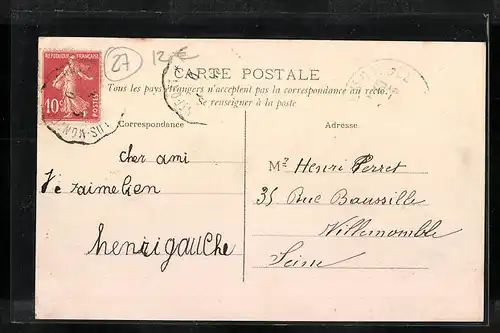 27
12 €
RÉPUBLIQUE FRANÇAISE
10c
POSTES
CARTE POSTALE
Tous les pays étrangers n'acceptent pas la correspondance au recto.
Se renseigner à la poste
Correspondance
Adresse
cher ami
Je taime bien
henri gauche
Mr Henri Perret
35 Rue Baussille
Villemomble
Seine